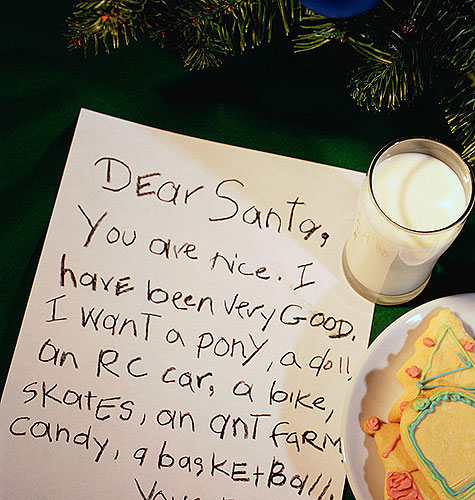 DEar Santa,
You are nice. I
havE been Very GOOD.
I wanT a pony, a doll,
an RC car, a bike,
skatEs, an anT faRM,
candy, a basKEtBall.